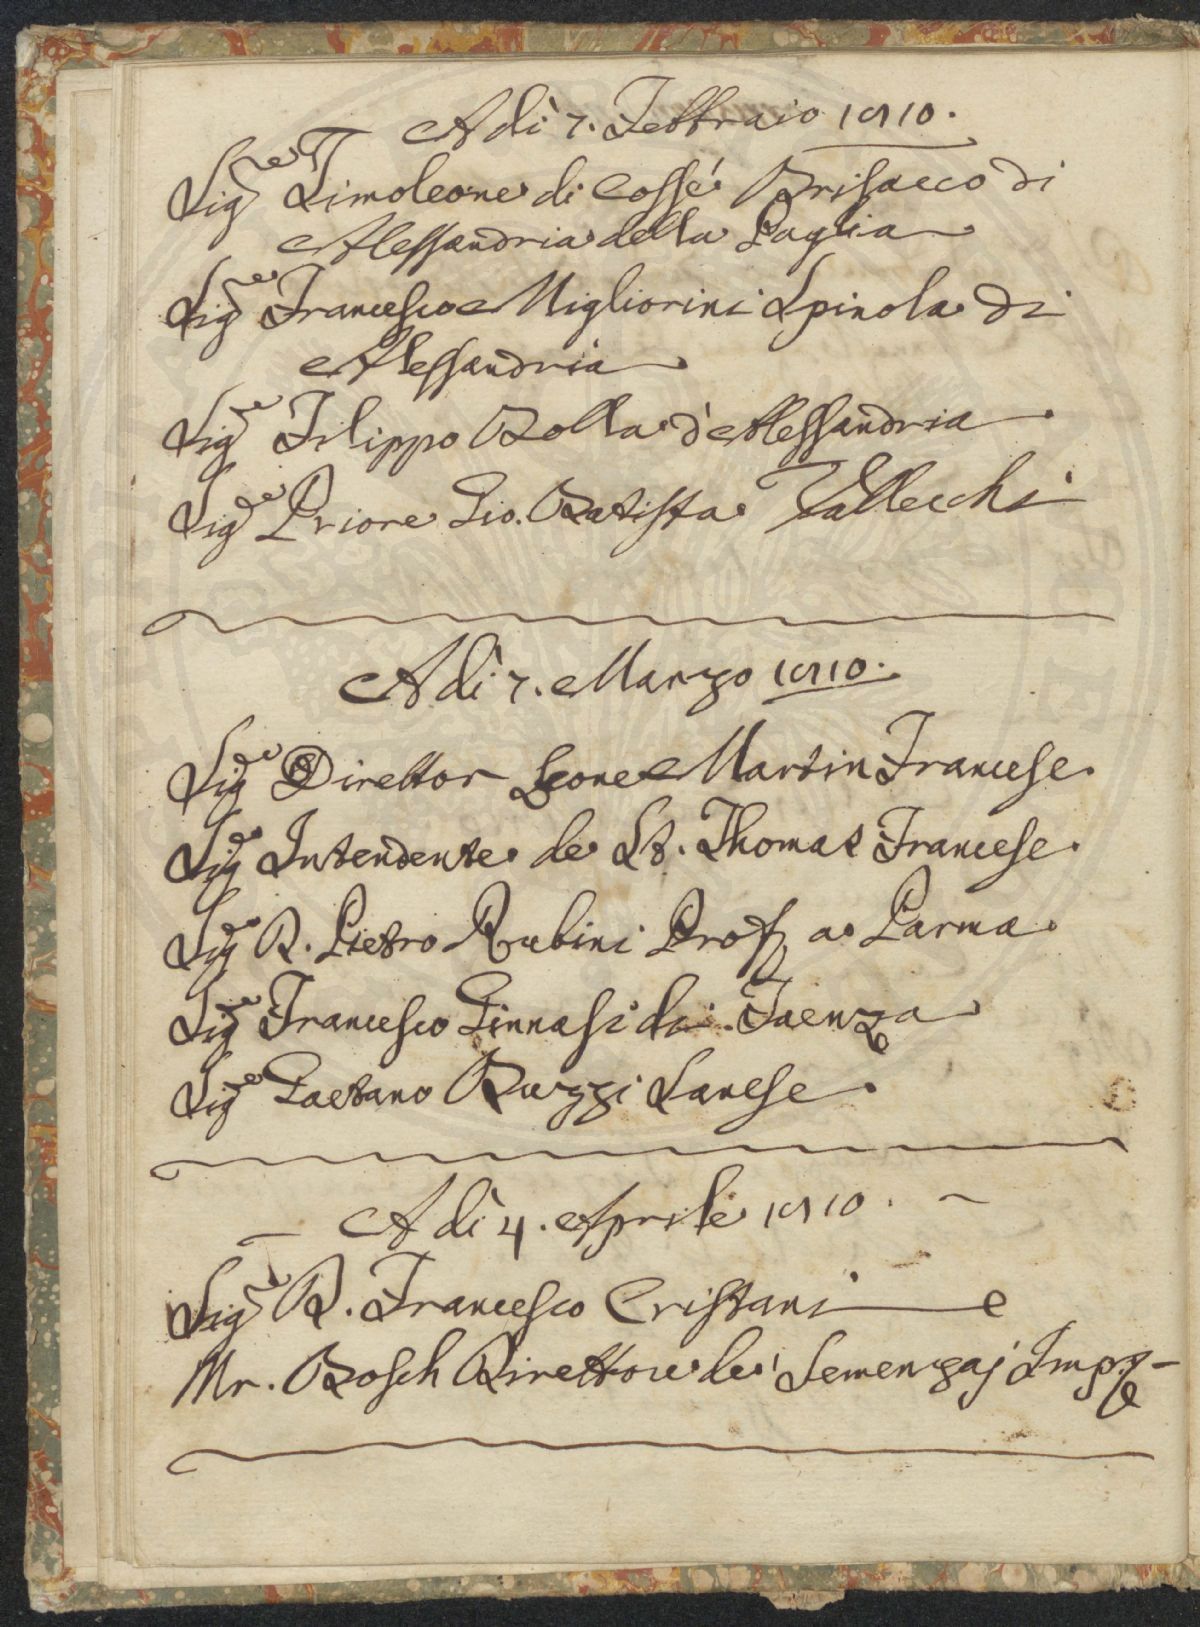 A dì 7. Febbraio 1810.
Sig.re Timoleone di Cossé Brisacco di
Alessandria della Paglia
Sig.re Francesco Migliorini Spinola di
Alessandria
Sig.re Filippo Bolla d'Alessandria
Sig.re Priore Gio. Batista Vallecchi
A dì 7. Marzo 1810.
Sig.e Direttor Leone Martin Francese.
Sig.e Intendente de St. Thomas Francese.
Sig.e D. Pietro Rubini Prof. a Parma.
Sig.e Francesco Ginnasi di Faenza
Sig.e Gaetano Buzzi Sanese.
A dì 4. Aprile 1810.
Sig.e D. Francesco Cristani e
Mr. Bosch Direttore de' Semenzaj Imp.